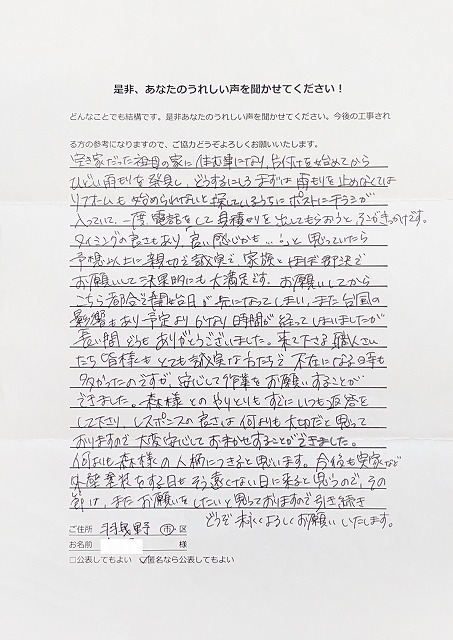 是非、あなたのうれしい声を聞かせてください！
どんなことでも結構です。是非あなたのうれしい声を聞かせてください。今後の工事され
る方の参考になりますので、ご協力どうぞよろしくお願いいたします。
空き家だった祖母の家に住む事になり、片付を始めてから
ひどい雨もりを発見し、どうするにしろまずは雨もりを止めなくては
リフォームも始められないと探しているうちにポストにチラシが
入っていて、一度、電話をして見積りを出してもらおうと、そこがきっかけです。
タイミングの良さもあり、良い感じかも…!と思っていたら
予想以上に親切で誠実で家族とほぼ即決で
お願いして決果的にも大満足です。お願いしてから
こちら都合で開始日が先になってしまい、また台風の
影響もあり予定よりかなり時間が経ってしまいましたが
長い間どうもありがとうございました。来て下さる職人さん
たち皆様もとても誠実な方たちで不在になる日等も
多かったのですが、安心して作業をお願いすることが
できました。森様とのやりとりもすぐにいつも返答を
して下さり、レスポンスの良さは何よりも大切だと思って
おりますので大変安心しておまかせすることができました。
何よりも森様の人柄につきると思います。今後も実家など
外壁塗装をする日もそう遠くない日に来ると思うので、その
節は、またお願いをしたいと思っておりますので引き続き
どうぞ末永くよろしくお願いいたします。
ご住所 羽曳野 市・区
お名前 様
□公表してもよい ✓匿名なら公表してもよい